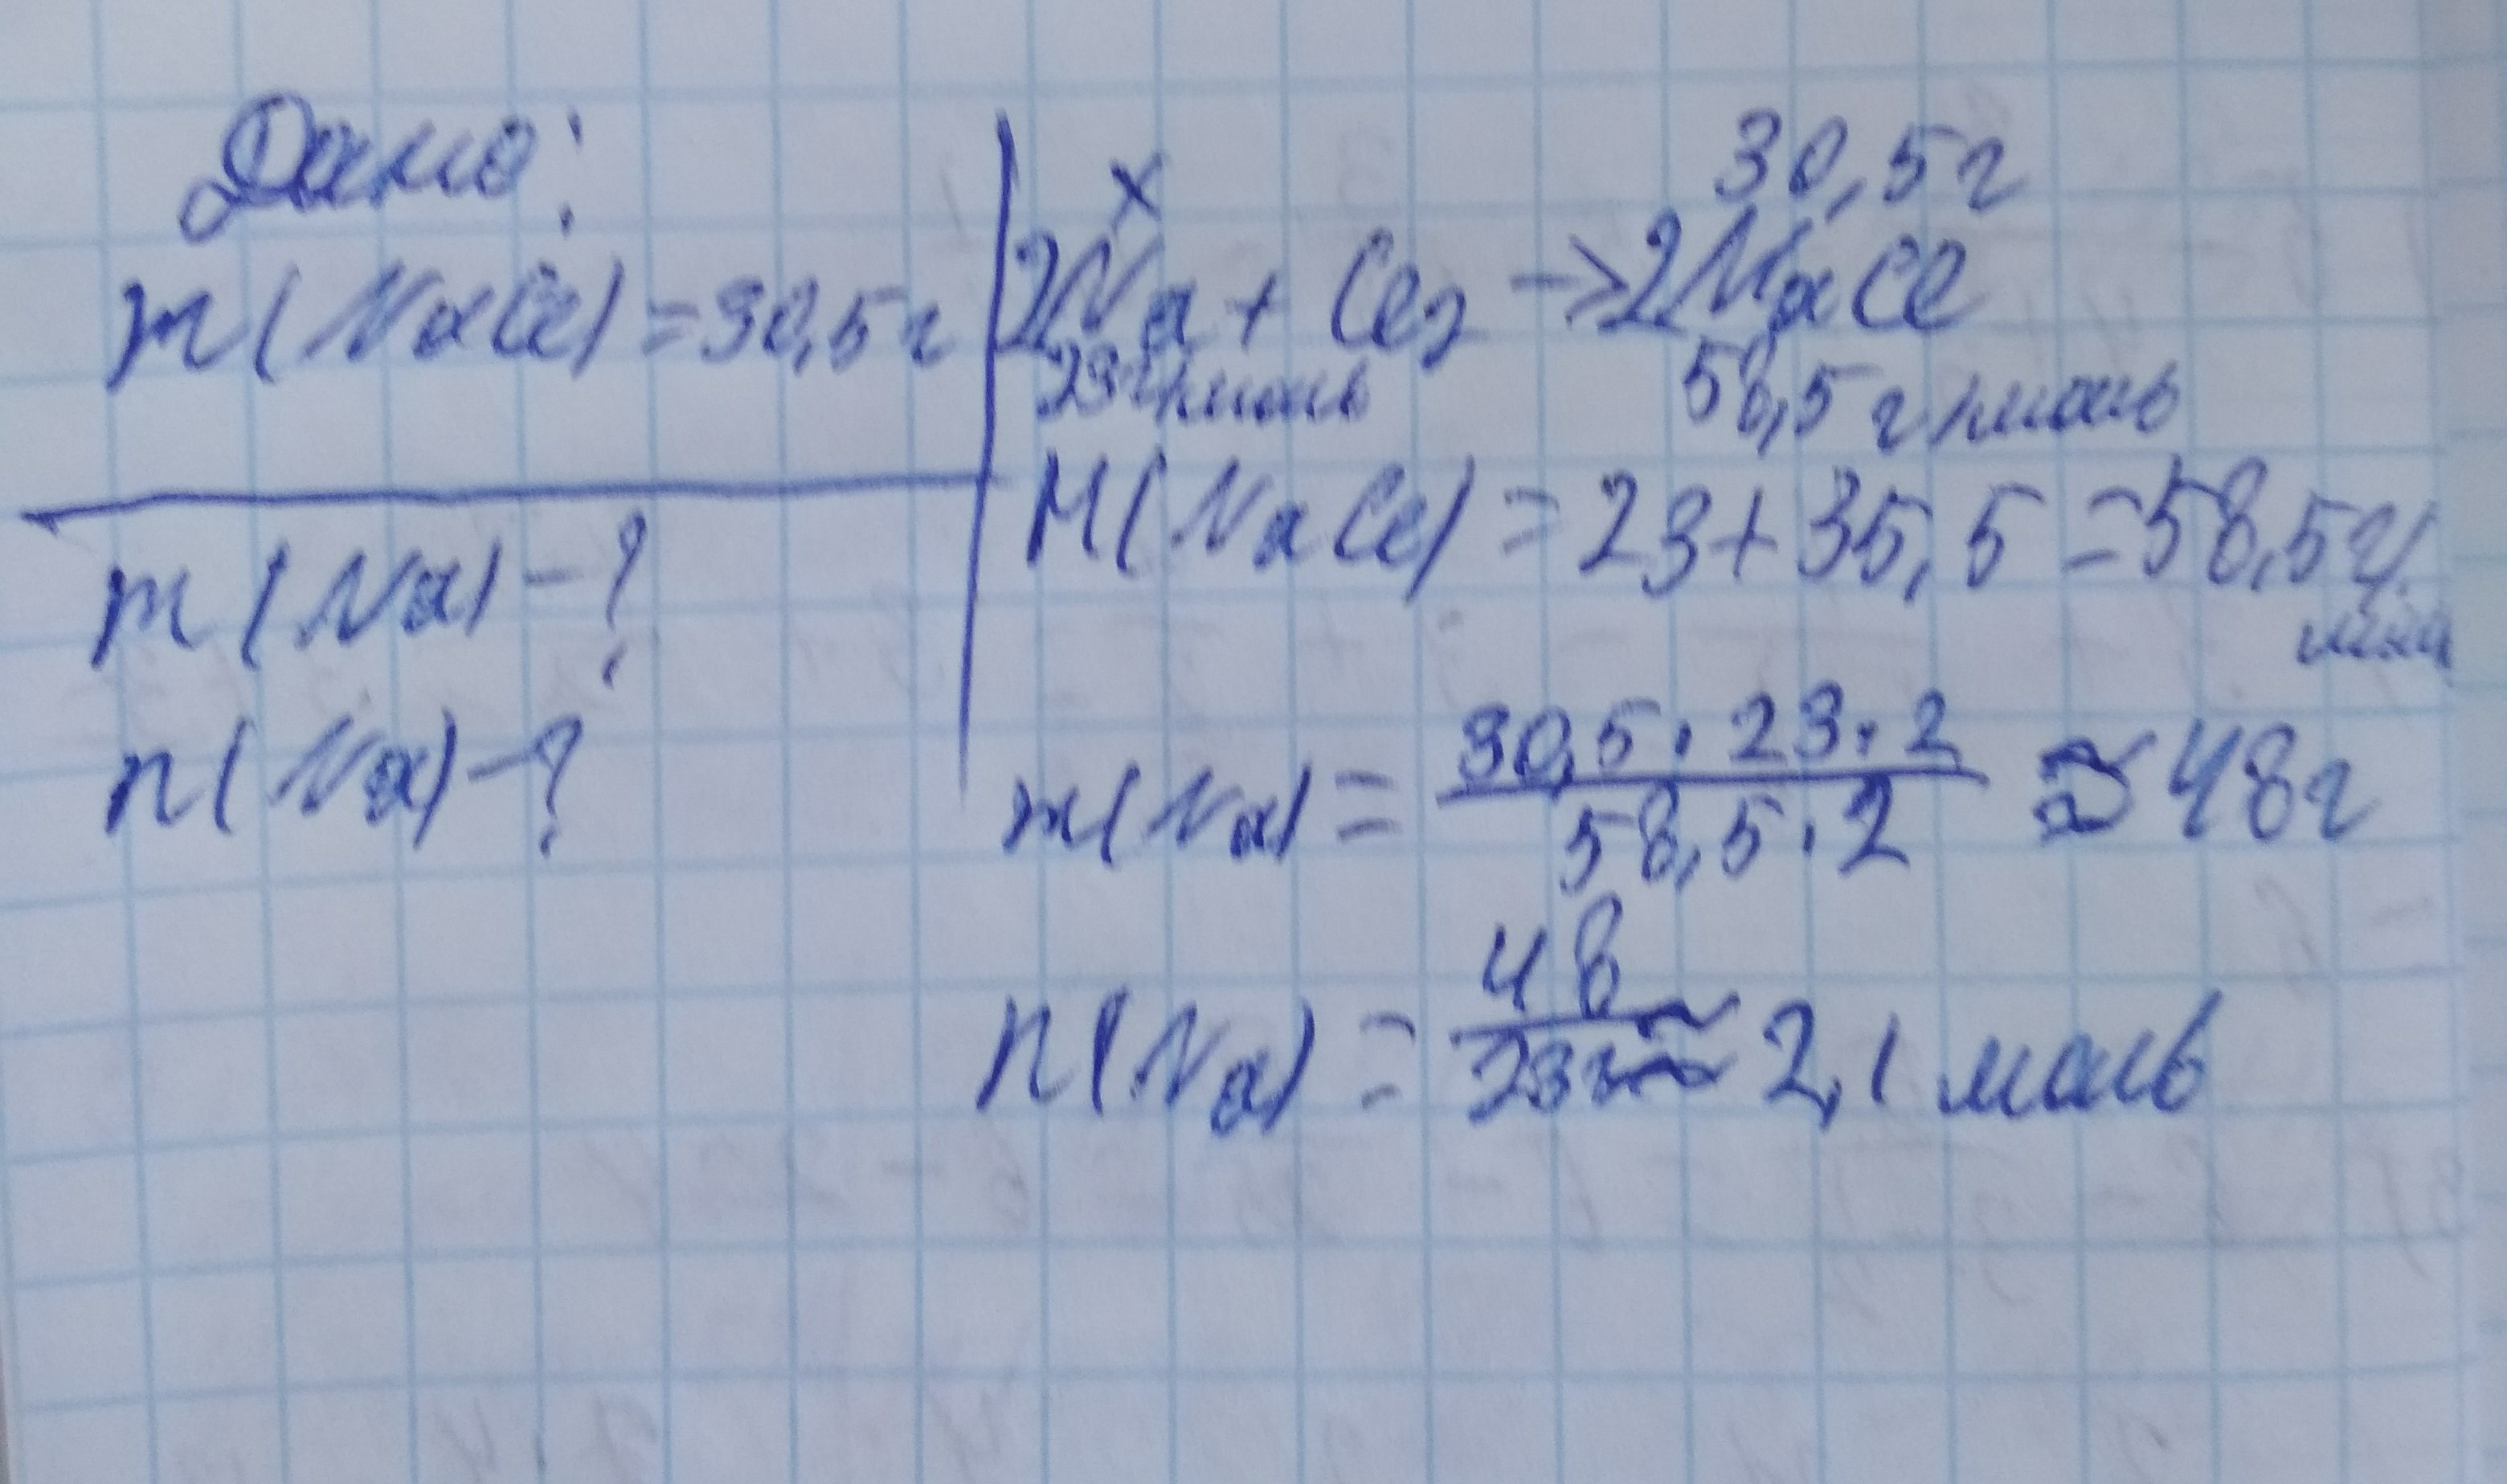 Дано:
m(NaCl) = 30,5г
m(Na) - ?
n(Na) - ?
x 30,5г
2Na + Cl₂ → 2NaCl
23г/моль 58,5г/моль
M(NaCl) = 23 + 35,5 = 58,5г/моль
m(Na) = 30,5·23·2 / 58,5·2 ≈ 48г
n(Na) = 48 / 23 ≈ 2,1 моль